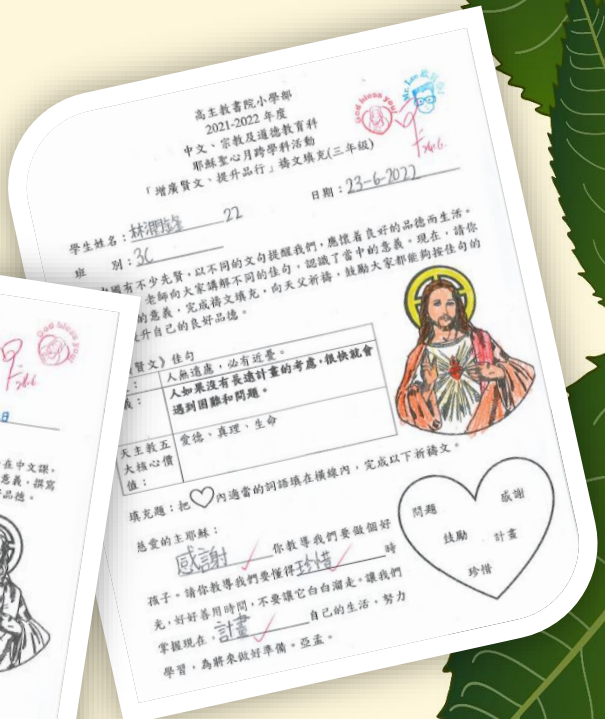 高主教書院小學部
2021-2022 年度
中文、宗教及道德教育科
耶穌聖心月跨學科活動
「增廣賢文、提升品行」禱文填充(三年級)
God bless you!
Mr. Lee
學生姓名：林潤鋒 22
日期：23-6-2022
班 別：3C
國有不少先賢，以不同的文句提醒我們，應懷着良好的品德而生活。
老師向大家講解不同的佳句，認識了當中的意義。現在，請你
的意義，完成禱文填充，向天父祈禱，鼓勵大家都能夠按佳句的
升自己的良好品德。
賢文》佳句
人無遠慮，必有近憂。
義：
人如果沒有長遠計畫的考慮，很快就會
遇到困難和問題。
天主教五
大核心價
值：
愛德、真理、生命
填充題：把 內適當的詞語填在橫線內，完成以下祈禱文。
慈愛的主耶穌：
感謝 你教導我們要做個好
孩子。請你教導我們要懂得珍惜 時
光，好好善用時間，不要讓它白白溜走。讓我們
掌握現在，計畫 自己的生活，努力
學習，為將來做好準備。亞孟。
問題 感謝
鼓勵 計畫
珍惜
God bless you
日
在中文課，
意義，撰寫
品德。